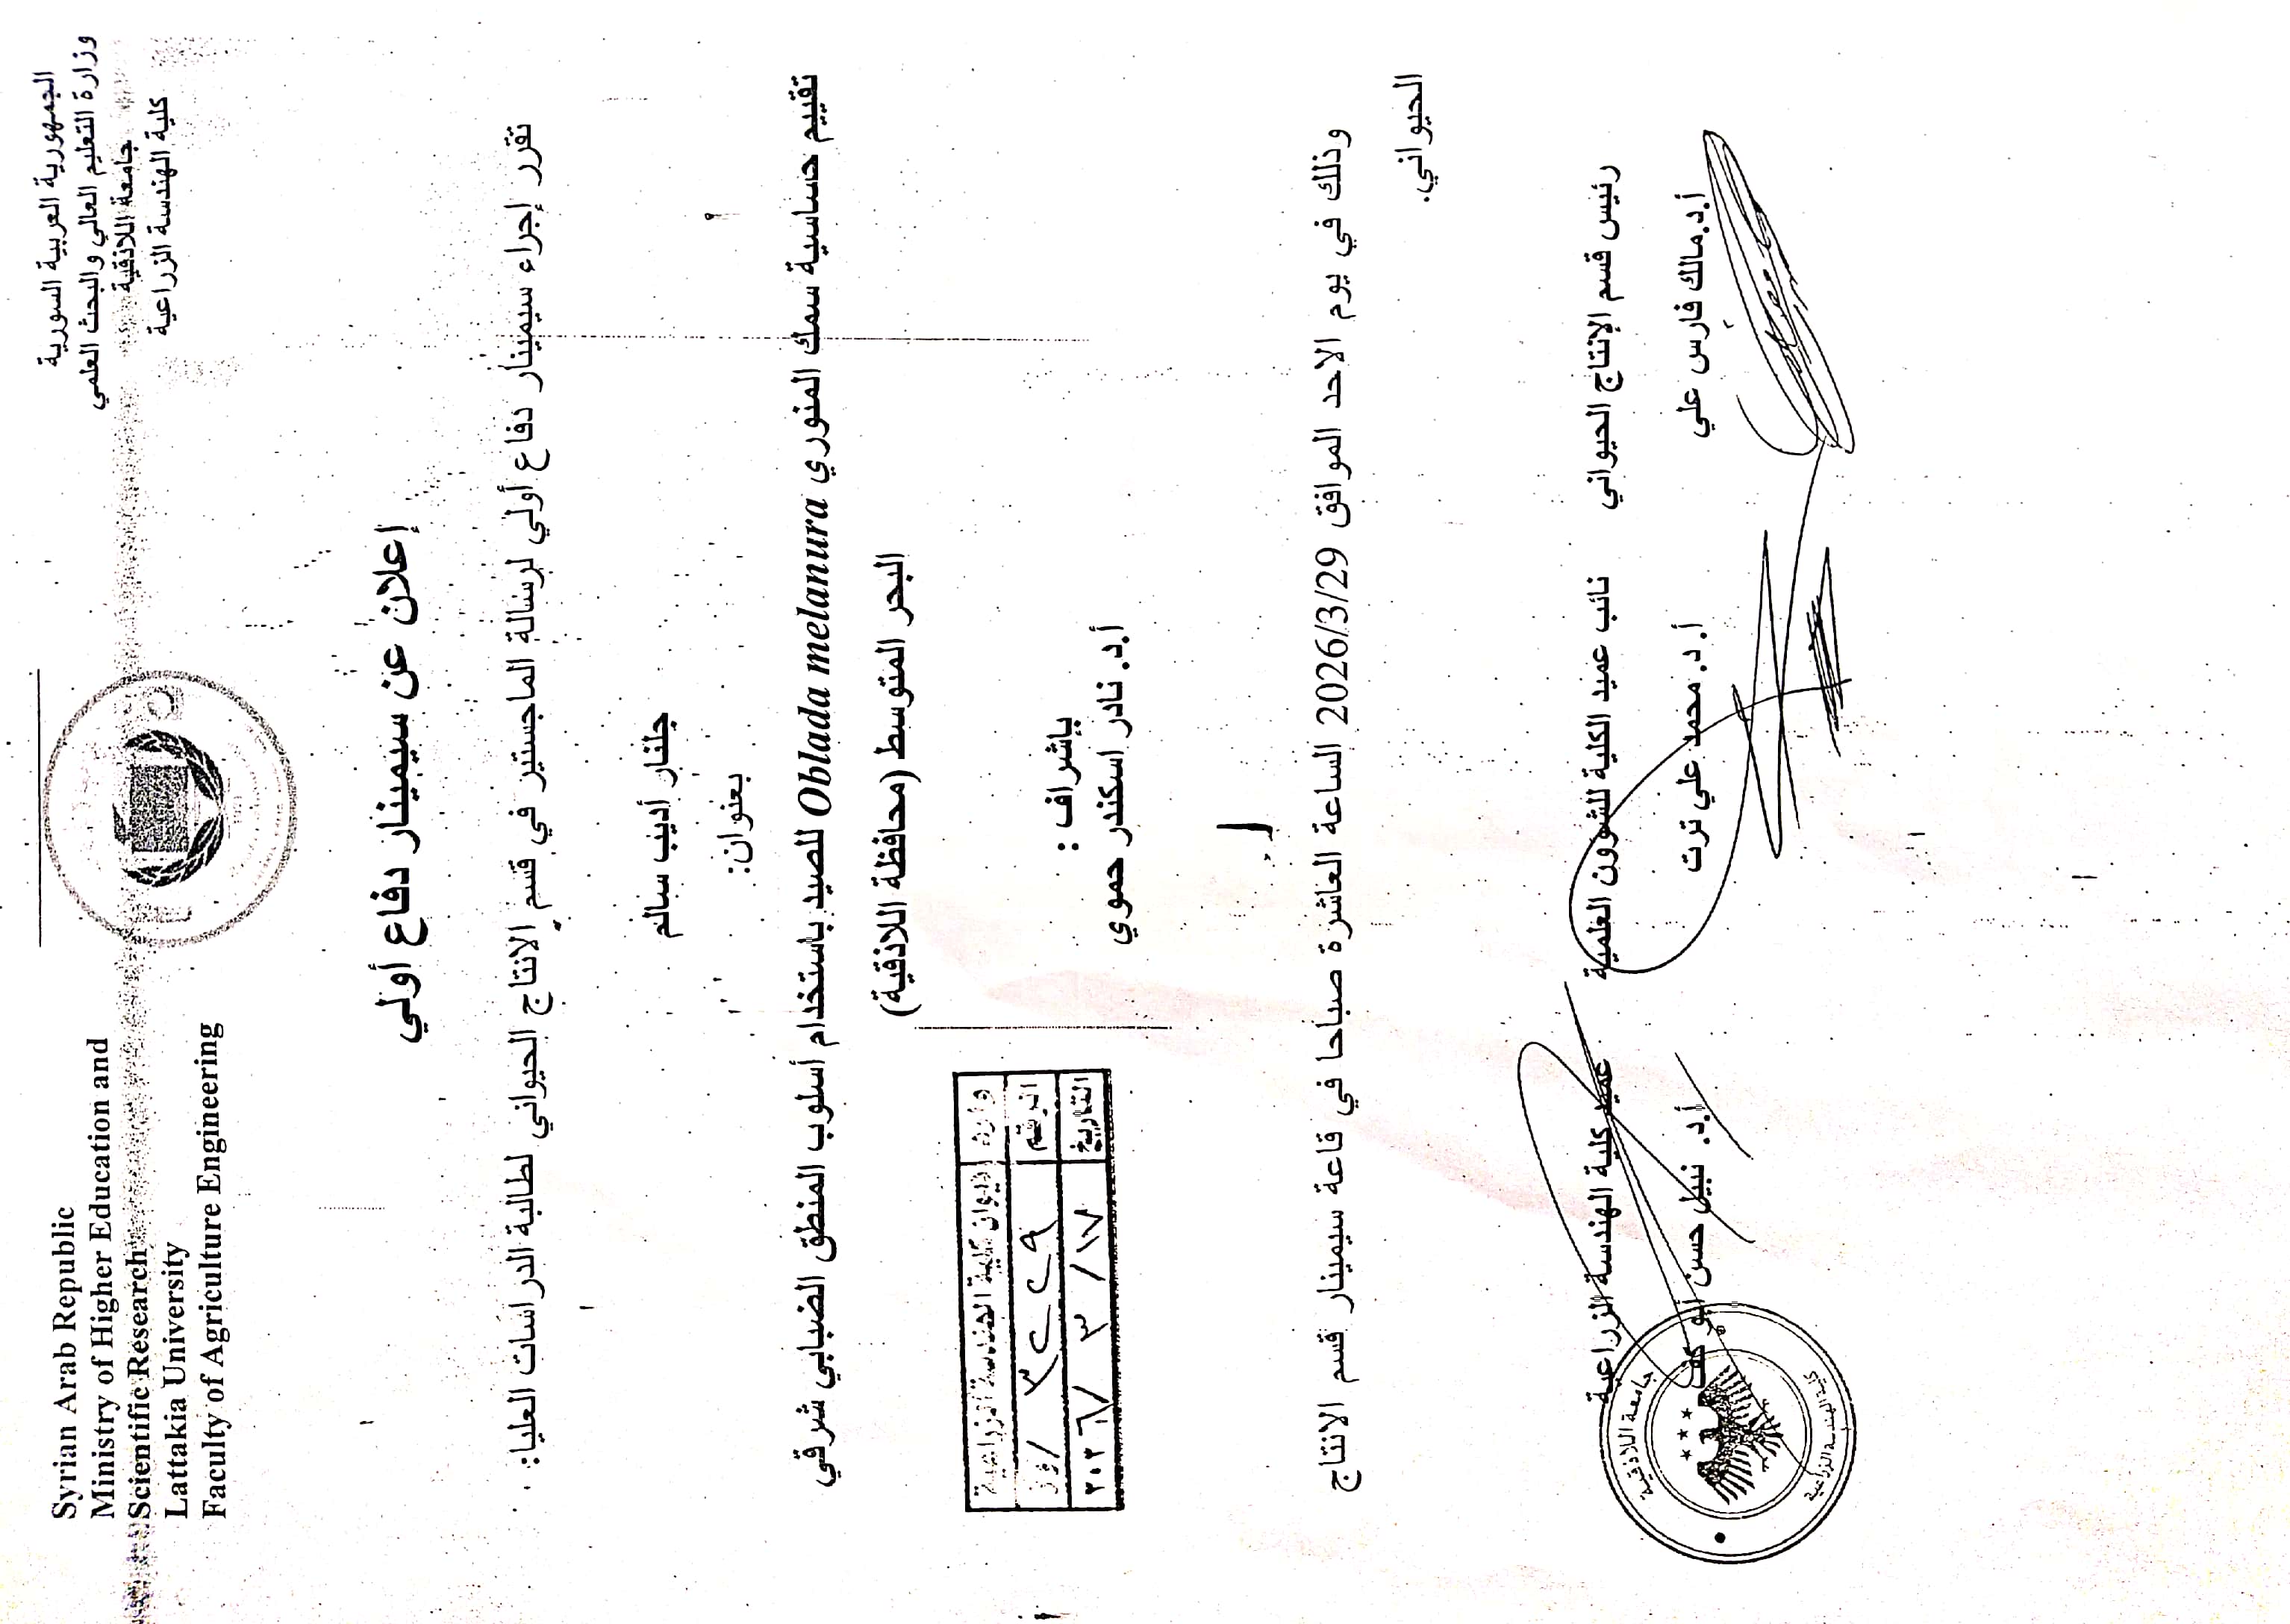 الجمهورية العربية السورية
وزارة التعليم العالي والبحث العلمي
جامعة اللاذقية
كلية الهندسة الزراعية
Syrian Arab Republic
Ministry of Higher Education and
Scientific Research
Lattakia University
Faculty of Agriculture Engineering
إعلان عن سيمينار دفاع أولي
تقرر إجراء سيمينار دفاع أولي لرسالة الماجستير في قسم الانتاج الحيواني لطالبة الدراسات العليا:
جلنار أديب سالم
بعنوان:
تقييم حساسية سمك المنوري Oblada melanura للصيد باستخدام أسلوب المنطق الضبابي شرقي
البحر المتوسط (محافظة اللاذقية)
بإشراف :
أ.د. نادر اسكندر حموي
ديوان كلية الهندسة الزراعية
الرقم ٣٢٢٩
التاريخ ٢٠٢٦/٣/١٧
وذلك في يوم الاحد الموافق 2026/3/29 الساعة العاشرة صباحا في قاعة سيمينار قسم الانتاج
الحيواني.
رئيس قسم الإنتاج الحيواني
أ.د.مالك فارس علي
نائب عميد الكلية للشؤون العلمية
أ.د. محمد علي ترت
عميد كلية الهندسة الزراعية
أ.د. نبيل حسن أبو كف
جامعة اللاذقية
كلية الهندسة الزراعية